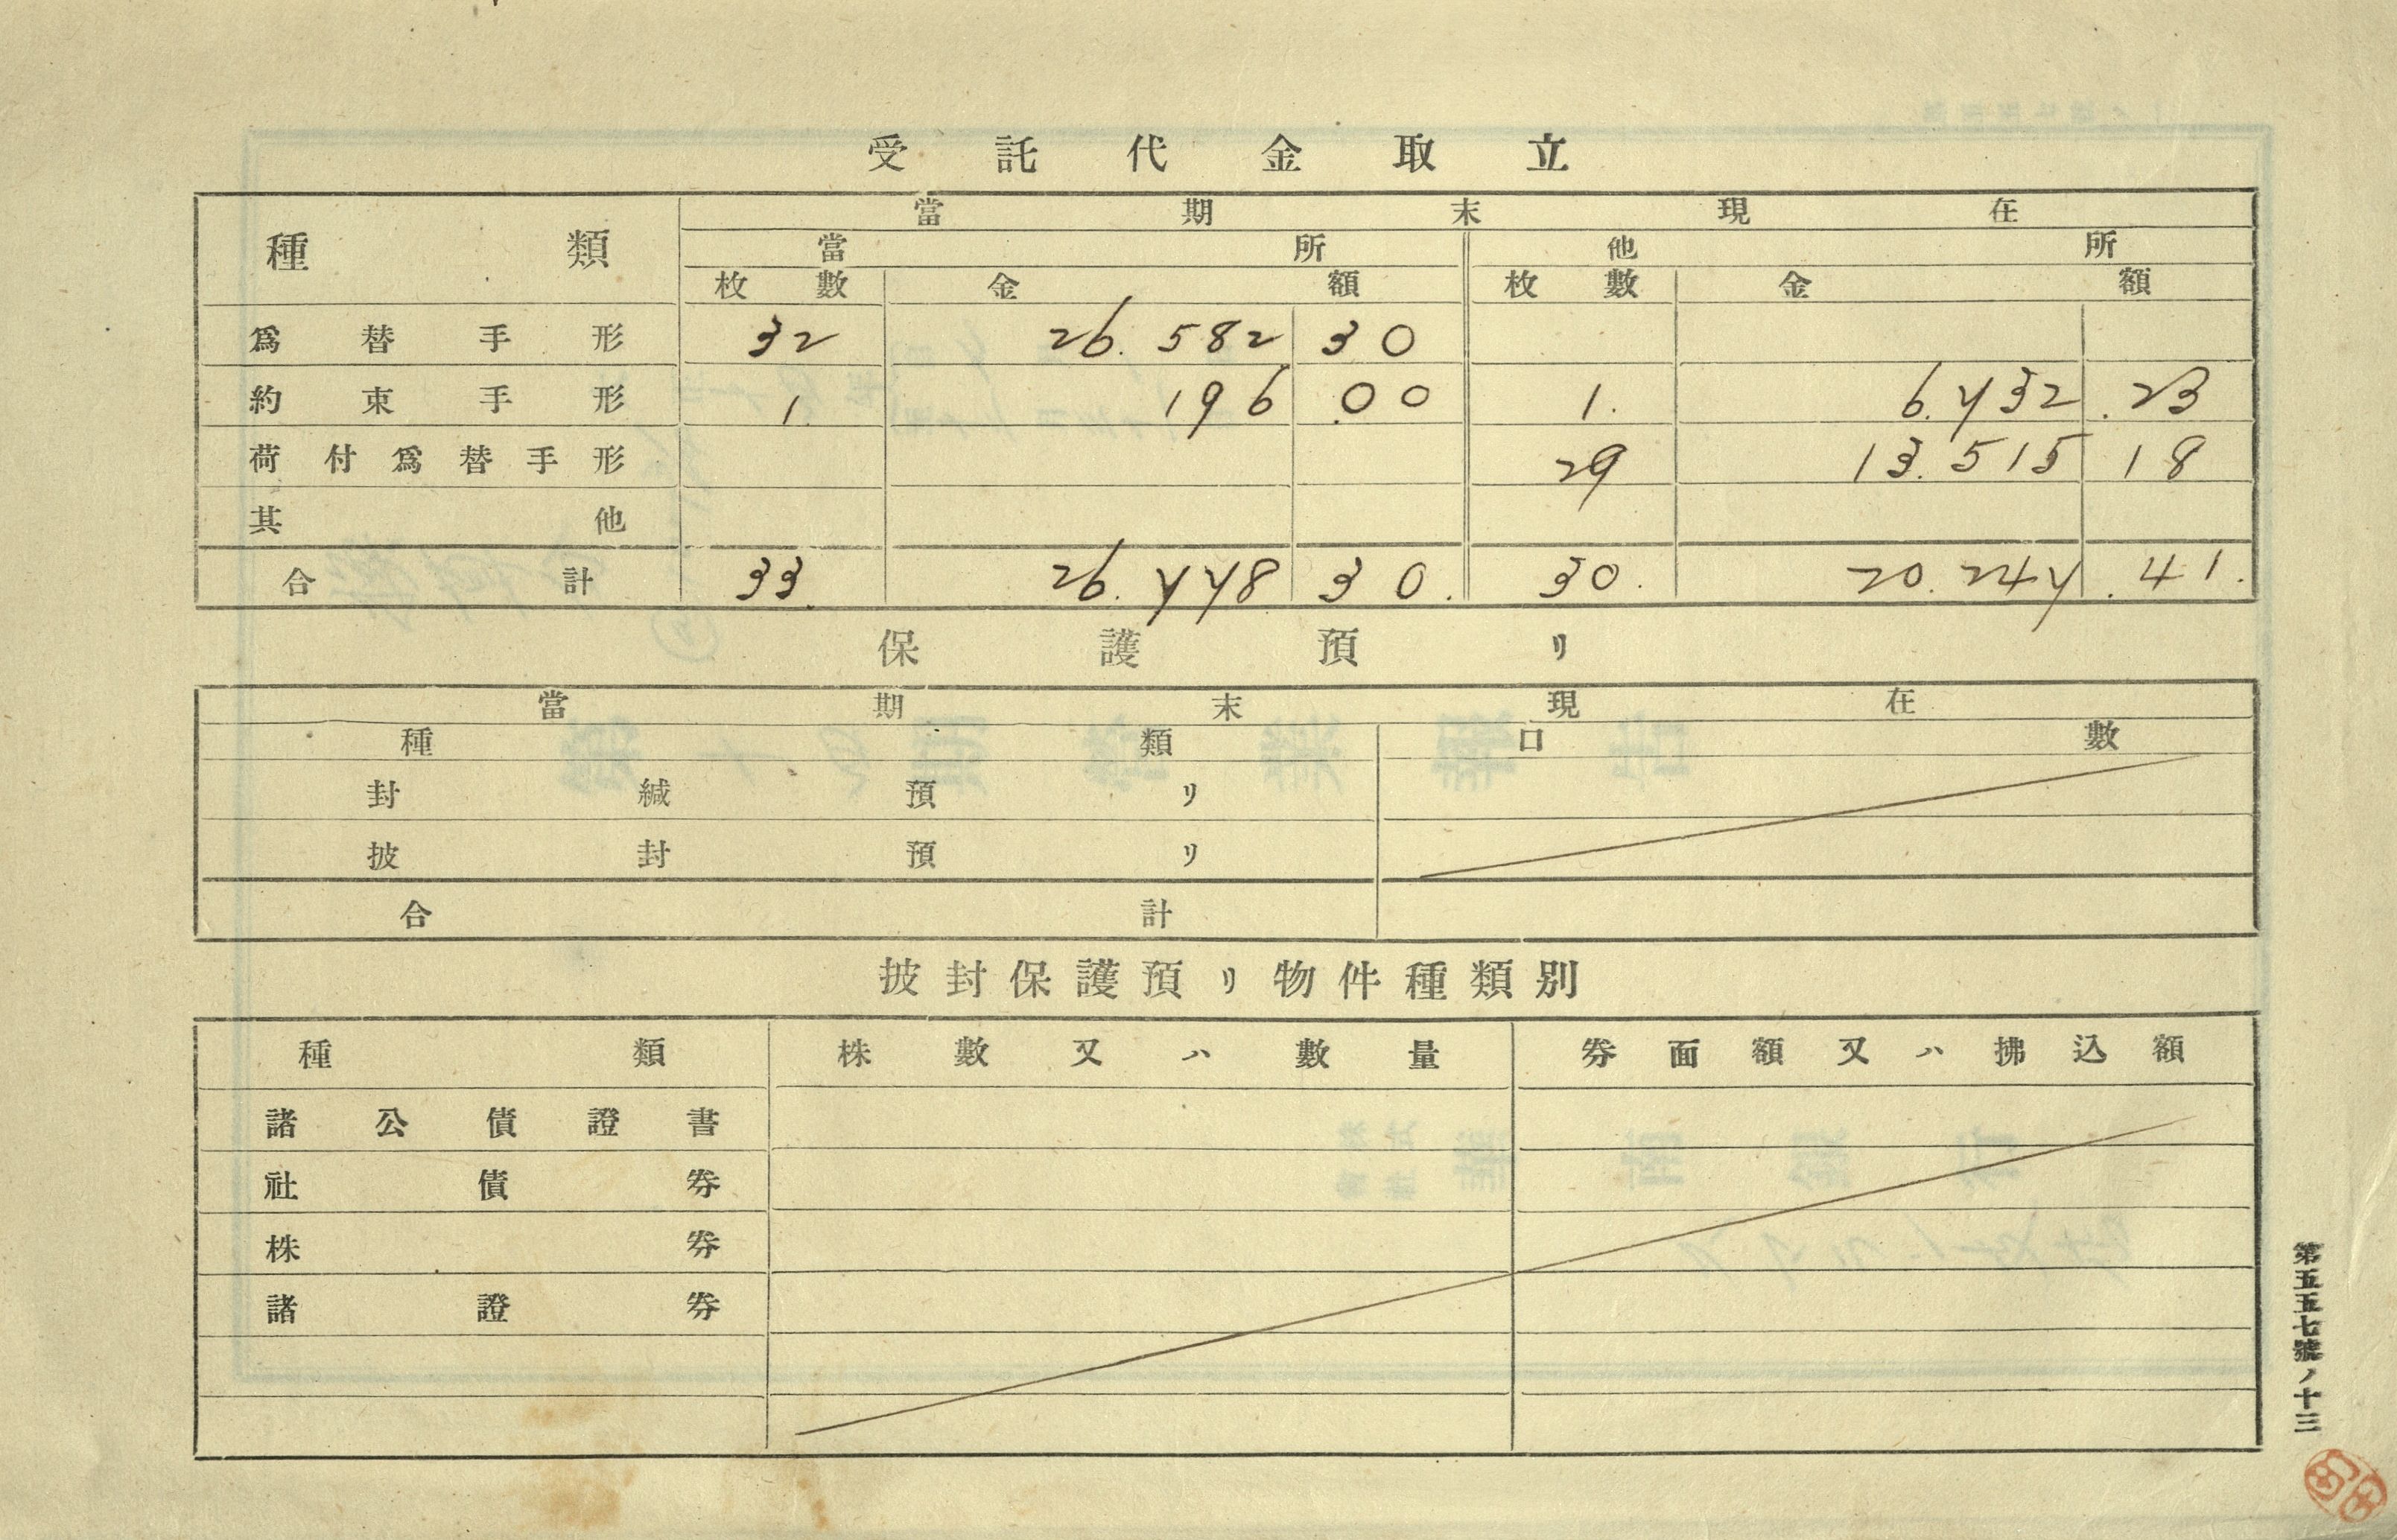 受託代金取立
種類 當期末現在
當所 他所
枚數 金額 枚數 金額
爲替手形 32 26.582 30
約束手形 1. 196 .00 1. 6.732 .23
荷付爲替手形 29 13.515 18
其他
合計 33. 26.778 30. 30. 20.247 .41.
保護預リ
當期末現在
種類 口數
封緘預リ
披封預リ
合計
披封保護預リ物件種類別
種類 株數又ハ數量 券面額又ハ拂込額
諸公債證書
社債券
株券
諸證券
第五五七號ノ十三